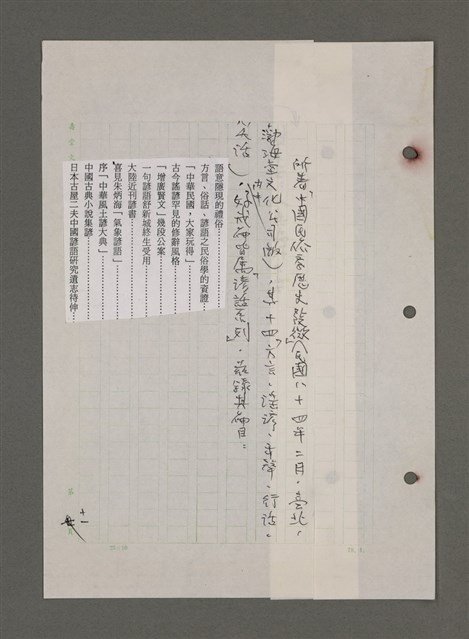 所著「中國民俗學歷史發微」(民國八十四年二月,臺北,
渤海堂文化公司版),其十四、方言、謠諺、市聲、行話、
,好戲篇皆屬諺語系列,茲錄其篇目:
語意隱現的禮俗
方言、俗話、諺語之民俗學的資證
「中華民國,大家玩得」
古今謠諺罕見的修辭風格
「增廣賢文」幾段公案
一句諺語舒新城終生受用
大陸近刊諺書
喜見朱炳海「氣象諺語」
序「中華風土諺大典」
中國古典小說集諺
日本古屋二夫中國諺語研究遺志待伸